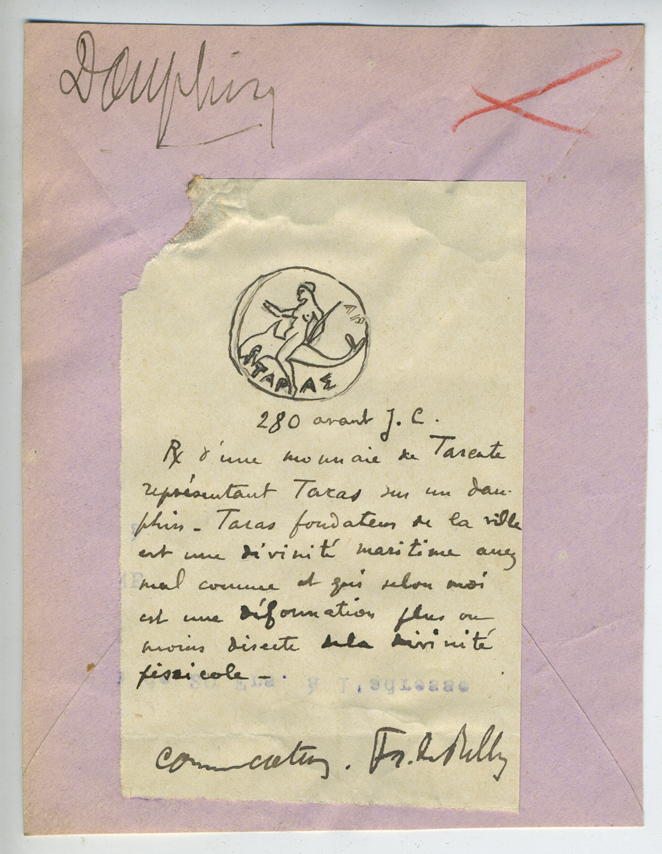 Dauphin
ΤΑΡΑΣ
280 avant J. C.
R d'une monnaie de Tarente
représentant Taras sur un dau-
phin - Taras fondateur de la ville
est une divinité maritime assez
mal connue et qui selon moi
est une déformation plus ou
moins directe de la divinité
piscicole -
communication. Fr. de